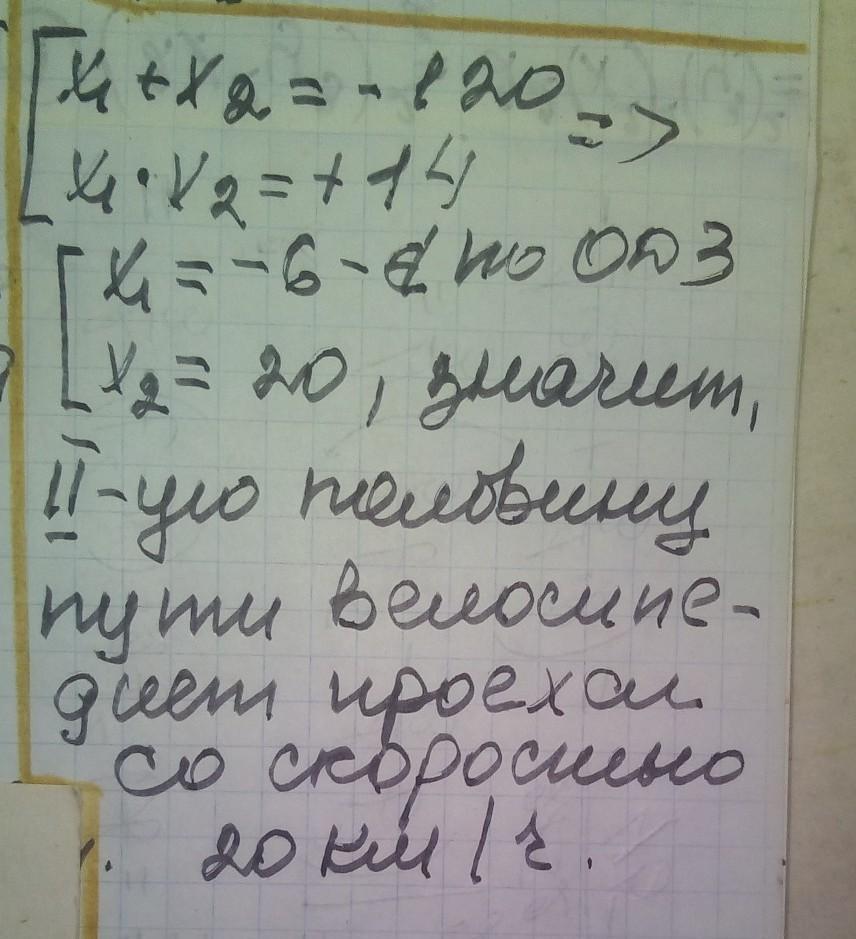 x₁ + x₂ = - 120 =>
x₁ · x₂ = + 14
x₁ = - 6 - ∉ по ОДЗ
x₂ = 20, значит,
II-ую половину
пути велосипе-
дист проехал
со скоростью
20 км/ч.